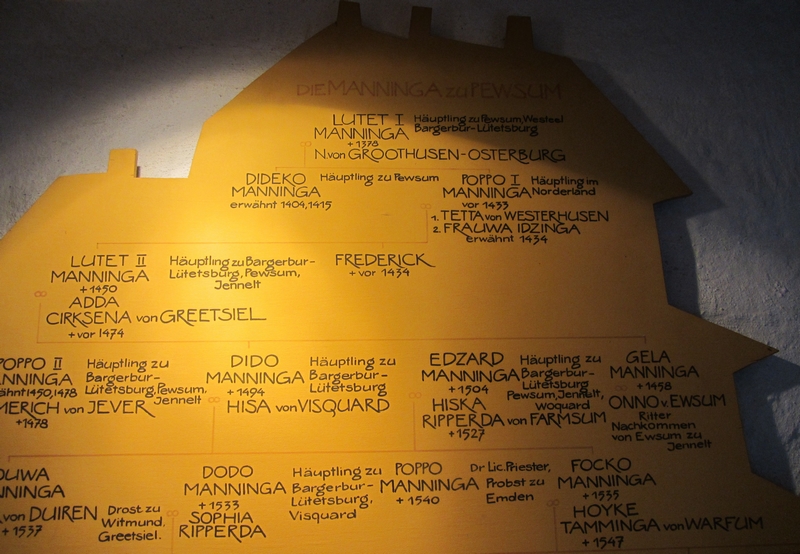 DIE MANNINGA zu PEWSUM
LUTET I
MANNINGA
+ 1378
Häuptling zu Pewsum, Westeel
Bargerbur-Lütetsburg
∞
N. von GROOTHUSEN-OSTERBURG
DIDEKO
MANNINGA
erwähnt 1404, 1415
Häuptling zu Pewsum
POPPO I
MANNINGA
vor 1433
Häuptling im
Norderland
∞
1. TETTA von WESTERHUSEN
2. FRAUWA IDZINGA
erwähnt 1434
LUTET II
MANNINGA
+ 1450
Häuptling zu Bargerbur-
Lütetsburg, Pewsum,
Jennelt
∞
ADDA
CIRKSENA von GREETSIEL
+ vor 1474
FREDERICK
+ vor 1434
POPPO II
NNINGA
ähnt 1450, 1478
Häuptling zu
Bargerbur-
Lütetsburg, Pewsum,
Jennelt
MERICH von JEVER
+ 1478
DIDO
MANNINGA
+ 1494
Häuptling zu
Bargerbur-
Lütetsburg
∞
HISA von VISQUARD
EDZARD
MANNINGA
+ 1504
Häuptling zu
Bargerbur-
Lütetsburg
Pewsum, Jennelt,
Woquard
∞
HISKA
RIPPERDA von FARMSUM
+ 1527
GELA
MANNINGA
+ 1458
∞
ONNO v. EWSUM
Ritter
Nachkommen
von Ewsum zu
Jennelt
OUWA
NNINGA
von DUIREN
+ 1537
Drost zu
Witmund,
Greetsiel.
DODO
MANNINGA
+ 1533
Häuptling zu
Bargerbur-
Lütetsburg,
Visquard
∞
SOPHIA
RIPPERDA
POPPO
MANNINGA
+ 1540
Dr Lic. Priester,
Probst zu
Emden
FOCKO
MANNINGA
+ 1535
∞
HOYKE
TAMMINGA von WARFUM
+ 1547